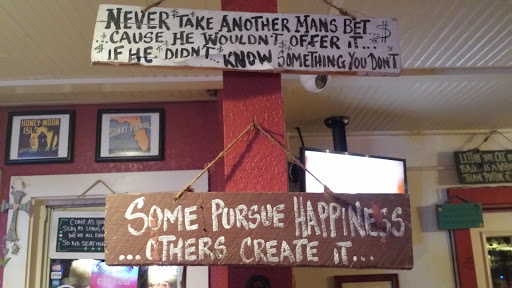 NEVER TAKE ANOTHER MANS BET
'CAUSE, HE WOULDN'T OFFER IT...
IF HE DIDN'T KNOW SOMETHING YOU DON'T
HONEY-MOON
ISL
SUNNY
LETTIN' THE CAT O
BAG.. IS A WHO
THAN PUTTIN' I
SOME PURSUE HAPPINESS
...OTHERS CREATE IT...
COME AS
STAY AS LONG A
WE'RE ALL FAM
SO NO SEATING